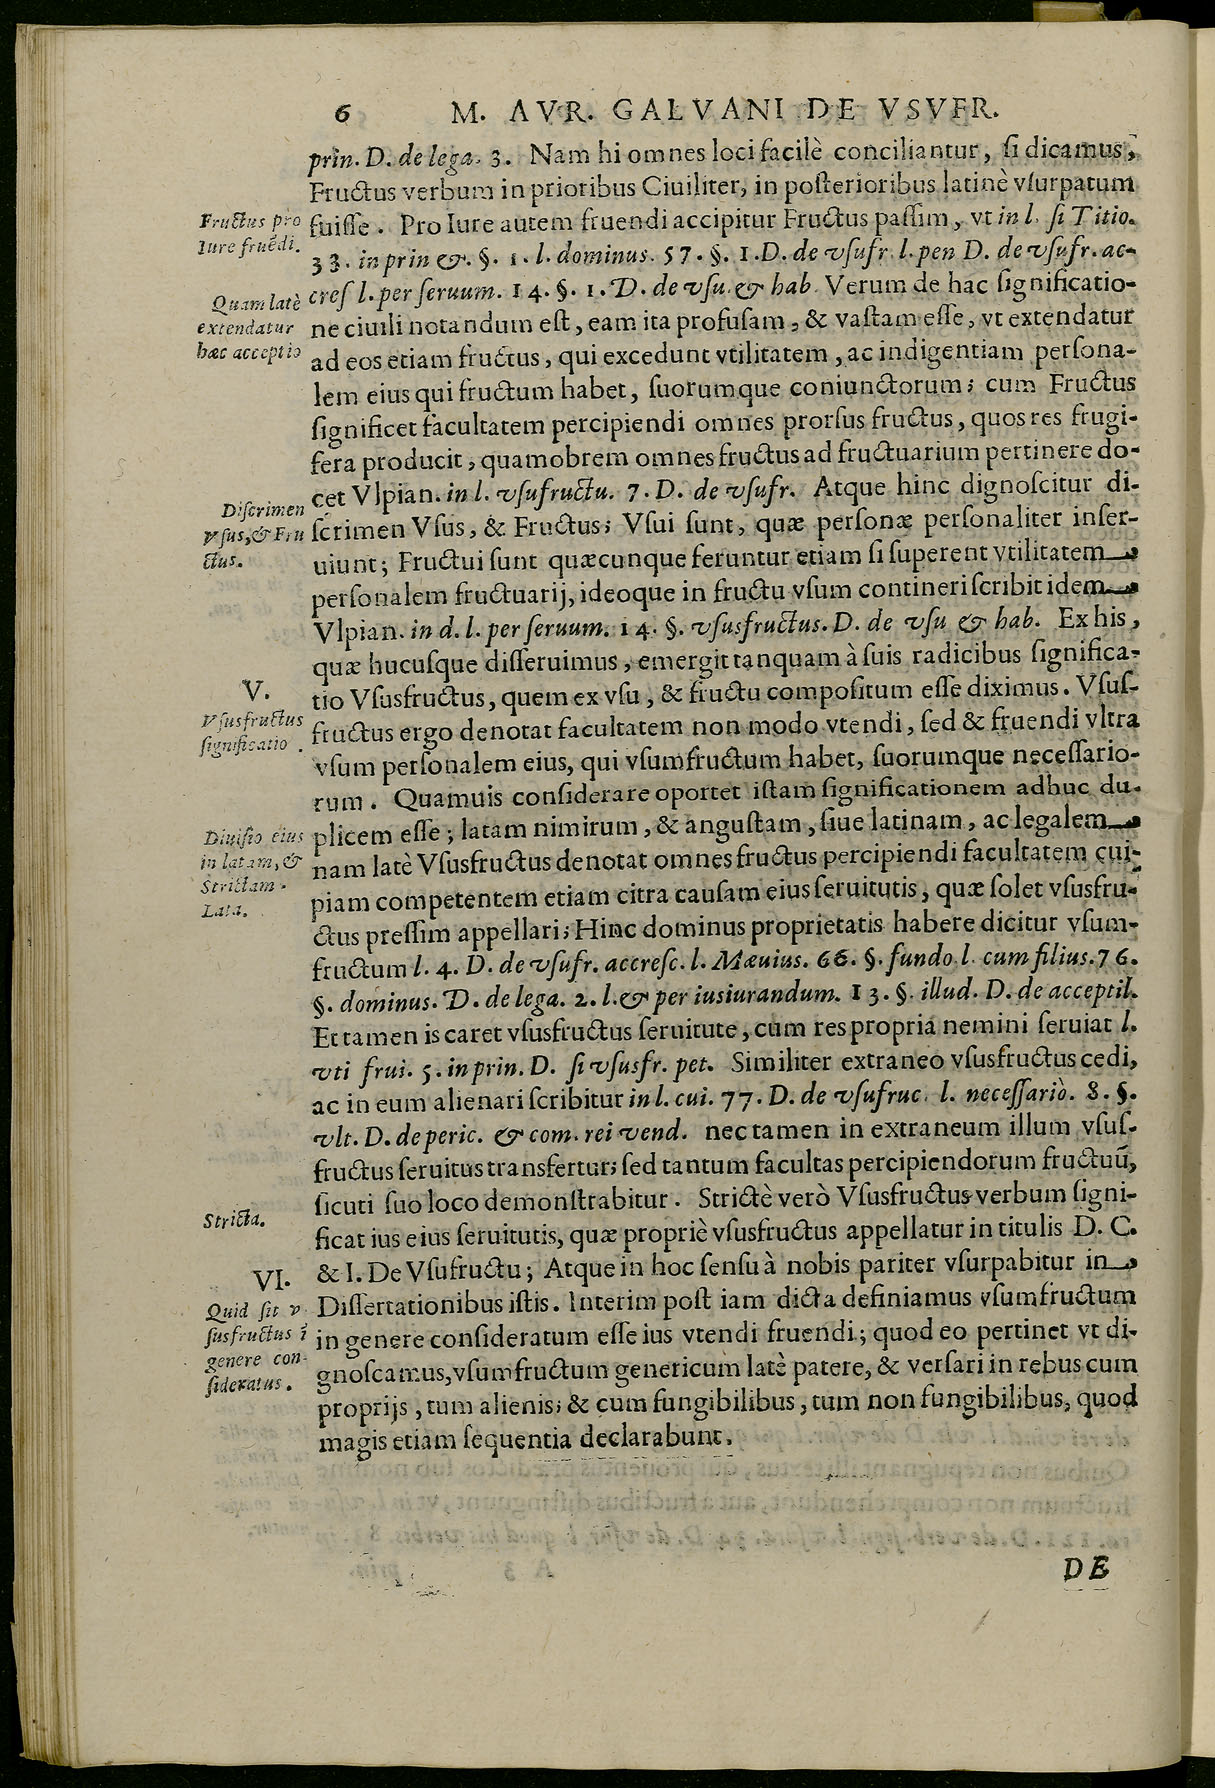 6 M. AVR. GALVANI DE VSVFR.
prin. D. de lega. 3. Nam hi omnes loci facilè conciliantur, ſi dicamus,
Fructus verbum in prioribus Ciuiliter, in poſterioribus latinè vſurpatum
Fructus pro
Iure fruẽdi.
fuiſſe. Pro Iure autem fruendi accipitur Fructus paſſim, vt in l. ſi Titio.
33. in prin &. §. 1. l. dominus. 57. §. 1. D. de vſufr l. pen D. de vſufr. ac-
Quam latè
extendatur
hæc acceptio
creſ l. per ſeruum. 14. §. 1. D. de vſu. & hab. Verum de hac ſignificatio-
ne ciuili notandum eſt, eam ita profuſam, & vaſtam eſſe, vt extendatur
ad eos etiam fructus, qui excedunt vtilitatem, ac indigentiam perſona-
lem eius qui fructum habet, ſuorumque coniunctorum; cum Fructus
ſignificet facultatem percipiendi omnes prorſus fructus, quos res frugi-
fera producit, quamobrem omnes fructus ad fructuarium pertinere do-
Diſcrimen
vſus, & Fru
ctus.
cet Vlpian. in l. vſufructu. 7. D. de vſufr. Atque hinc dignoſcitur di-
ſcrimen Vſus, & Fructus; Vſui ſunt, quæ perſonæ perſonaliter inſer-
uiunt; Fructui ſunt quæcunque feruntur etiam ſi ſuperent vtilitatem
perſonalem fructuarij, ideoque in fructu vſum contineri ſcribit idem
Vlpian. in d. l. per ſeruum. 14. §. vſusfructus. D. de vſu & hab. Ex his,
quæ hucuſque diſſeruimus, emergit tanquam à ſuis radicibus ſignifica-
V.
Vſusfructus
ſignificatio.
tio Vſusfructus, quem ex vſu, & fructu compoſitum eſſe diximus. Vſuſ-
fructus ergo denotat facultatem non modo vtendi, ſed & fruendi vltra
vſum perſonalem eius, qui vſumfructum habet, ſuorumque neceſſario-
rum. Quamuis conſiderare oportet iſtam ſignificationem adhuc du-
Diuiſio eius
in latam, &
Strictam.
Lata.
plicem eſſe; latam nimirum, & anguſtam, ſiue latinam, ac legalem
nam latè Vſusfructus denotat omnes fructus percipiendi facultatem cui-
piam competentem etiam citra cauſam eius ſeruitutis, quæ ſolet vſusfru-
ctus preſſim appellari; Hinc dominus proprietatis habere dicitur vſum-
fructum l. 4. D. de vſufr. accreſc. l. Mæuius. 66. §. fundo. l. cum filius. 76.
§. dominus. D. de lega. 2. l. & per iusiurandum. 13. §. illud. D. de acceptil.
Et tamen is caret vſusfructus ſeruitute, cum res propria nemini ſeruiat l.
vti frui. 5. in prin. D. ſi vſusfr. pet. Similiter extraneo vſusfructus cedi,
ac in eum alienari ſcribitur in l. cui. 77. D. de vſufruc. l. neceſſariò. 8. §.
vlt. D. de peric. & com. rei vend. nec tamen in extraneum illum vſuſ-
fructus ſeruitus transfertur; ſed tantum facultas percipiendorum fructuū,
ſicuti ſuo loco demonſtrabitur. Strictè verò Vſusfructus verbum ſigni-
Stricta.
ficat ius eius ſeruitutis, quæ propriè vſusfructus appellatur in titulis D. C.
& I. De Vſufructu; Atque in hoc ſenſu à nobis pariter vſurpabitur in
VI.
Quid ſit v
ſusfructus ĩ
genere con-
ſideratus.
Diſſertationibus iſtis. Interim poſt iam dicta definiamus vſumfructum
in genere conſideratum eſſe ius vtendi fruendi; quod eo pertinet vt di-
gnoſcamus, vſumfructum genericum latè patere, & verſari in rebus cum
proprijs, tum alienis; & cum fungibilibus, tum non fungibilibus, quod
magis etiam ſequentia declarabunt.
DE